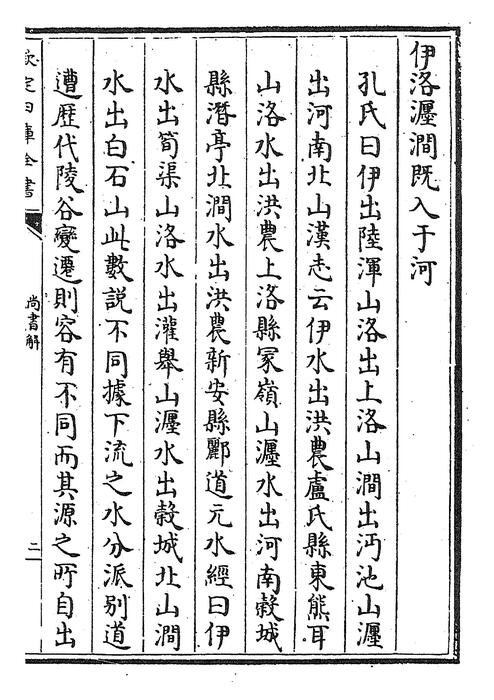 伊洛瀍澗既入于河
孔氏曰伊出陸渾山洛出上洛山澗出沔池山瀍
出河南北山漢志云伊水出洪農盧氏縣東熊耳
山洛水出洪農上洛縣冡嶺山瀍水出河南穀城
縣潛亭北澗水出洪農新安縣酈道元水經曰伊
水出筍渠山洛水出灌舉山瀍水出穀城北山澗
水出白石山此數説不同據下流之水分派别道
遭歴代陵谷變遷則容有不同而其源之所自出
欽定四庫全書
尚書解
二